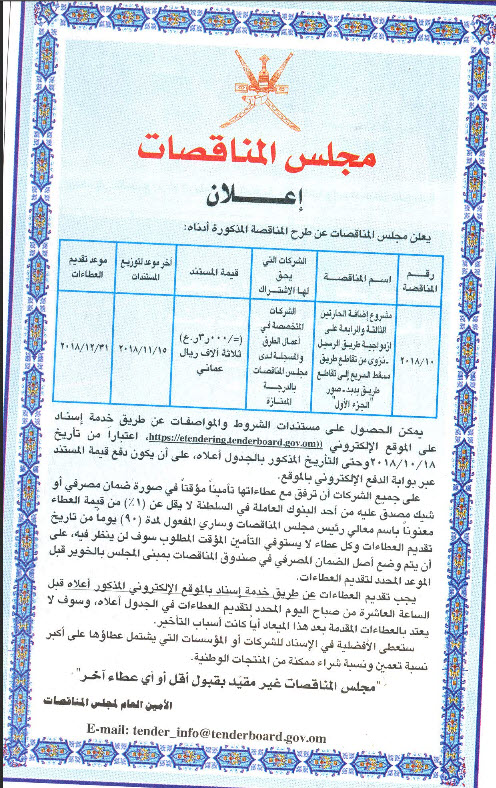 مجلس المناقصات
إعـــلان
يعلن مجلس المناقصات عن طرح المناقصة المذكورة أدناه:
رقـم المناقصة
اسـم المناقصة
الشركات التي يحق لها الاشتراك
قيمة المستند
آخر موعد لتوزيع المستندات
موعد تقديم العطاءات
٢٠١٨/١٠
مشروع إضافة الحارتين
الثالثة والرابعة على
ازدواجية طريق الرسيل
-نزوى من تقاطع طريق
مسقط السريع إلى تقاطع
طريق بدبد-صور
"الجزء الأول"
الشركات
المتخصصة في
أعمال الطرق
والمسجلة لدى
مجلس المناقصات
بالدرجة
الممتازة
(=/٠٠٠ر٣ر.ع)
ثلاثة آلاف ريال
عماني
٢٠١٨/١١/١٥
٢٠١٨/١٢/٣١
يمكن الحصول على مستندات الشروط والمواصفات عن طريق خدمة إسناد
على الموقع الإلكتروني ((https://etendering.tenderboard.gov.om، اعتباراً من تاريخ
٢٠١٨/١٠/١٨ وحتى التأريخ المذكور بالجدول أعلاه، على أن يكون دفع قيمة المستند
عبر بوابة الدفع الإلكتروني بالموقع.
على جميع الشركات أن ترفق مع عطاءاتها تأميناً مؤقتاً في صورة ضمان مصرفي أو
شيك مصدق عليه من أحد البنوك العاملة في السلطنة لا يقل عن (١٪) من قيمة العطاء
معنوناً باسم معالي رئيس مجلس المناقصات وساري المفعول لمدة (٩٠) يوماً من تاريخ
تقديم العطاءات وكل عطاء لا يستوفي التأمين المؤقت المطلوب سوف لن ينظر فيه، على
أن يتم وضع أصل الضمان المصرفي في صندوق المناقصات بمبنى المجلس بالخوير قبل
الموعد المحدد لتقديم العطاءات.
يجب تقديم العطاءات عن طريق خدمة إسناد بالموقع الإلكتروني المذكور أعلاه قبل
الساعة العاشرة من صباح اليوم المحدد لتقديم العطاءات في الجدول أعلاه، وسوف لا
يعتد بالعطاءات المقدمة بعد هذا الميعاد أيا كانت أسباب التأخير.
ستعطى الأفضلية في الإسناد للشركات أو المؤسسات التي يشتمل عطاؤها على أكبر
نسبة تعمين ونسبة شراء ممكنة من المنتجات الوطنية.
"مجلس المناقصات غير مقيد بقبول أقل أو أي عطاء آخر"
الأمين العام لمجلس المناقصات
E-mail: tender_info@tenderboard.gov.om